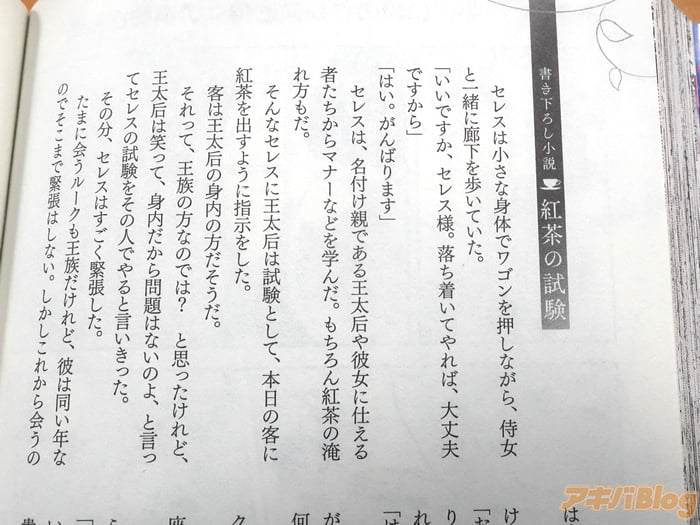 書き下ろし小説
紅茶の試験
セレスは小さな身体でワゴンを押しながら、侍女
と一緒に廊下を歩いていた。
「いいですか、セレス様。落ち着いてやれば、大丈夫
ですから」
「はい。がんばります」
セレスは、名付け親である王太后や彼女に仕える
者たちからマナーなどを学んだ。もちろん紅茶の淹
れ方もだ。
そんなセレスに王太后は試験として、本日の客に
紅茶を出すように指示をした。
客は王太后の身内の方だそうだ。
それって、王族の方なのでは？　と思ったけれど、
王太后は笑って、身内だから問題はないのよ、と言っ
てセレスの試験をその人でやると言いきった。
その分、セレスはすごく緊張した。
たまに会うルークも王族だけれど、彼は同い年な
のでそこまで緊張はしない。しかしこれから会うの
は
け
「お
り
れ
「は
が
何
ク
座
ら
「
い
貴
アキバBlog